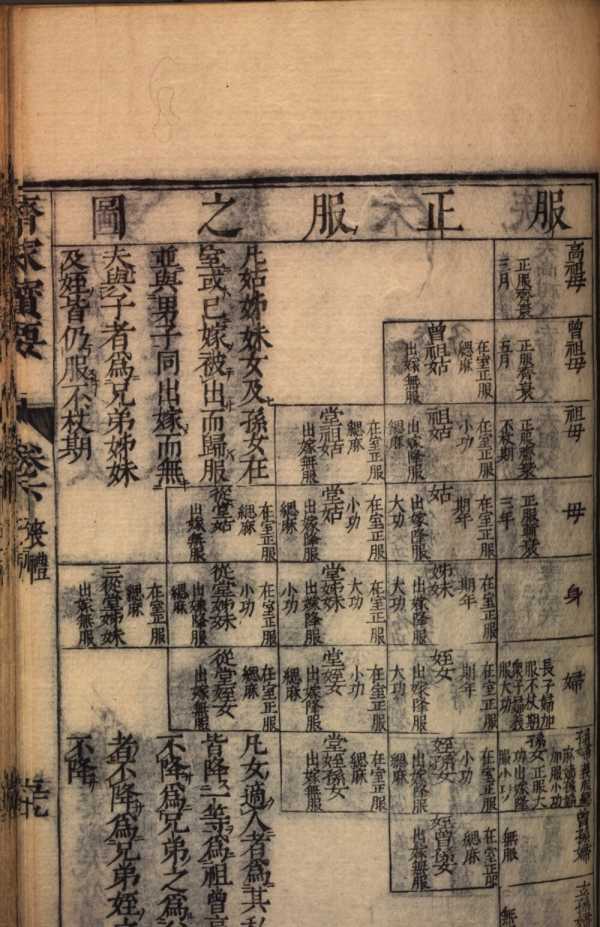 服正服之圖
高祖母
正服齊衰
三月
曾祖母
正服齊衰
五月
曾祖姑
在室正服
緦麻
出嫁無服
祖母
正服齊衰
不杖期
祖姑
在室正服
小功
出嫁降服
緦麻
堂祖姑
在室正服
緦麻
出嫁無服
母
正服
三年
姑
在室正服
期年
出嫁降服
大功
堂姑
在室正服
小功
出嫁降服
緦麻
從堂姑
在室正服
緦麻
出嫁無服
身
姊妹
在室正服
期年
出嫁降服
大功
堂姊妹
在室正服
大功
出嫁降服
小功
從堂姊妹
在室正服
小功
出嫁降服
緦麻
三從堂姊妹
在室正服
緦麻
出嫁無服
婦
長子婦加
服不杖期
衆子婦義
服大功
姪女
在室正服
期年
出嫁降服
大功
堂姪女
在室正服
小功
出嫁降服
緦麻
從堂姪女
在室正服
緦麻
出嫁無服
孫女正服大
功出嫁降
服小功
姪孫女
在室正服
小功
出嫁降服
緦麻
堂姪孫女
在室正服
緦麻
出嫁無服
曾孫婦
無服
姪曾孫女
在室正服
緦麻
出嫁無服
無
凡姑姊妹女及孫女在
室或已嫁被出而歸服
並與男子同出嫁而無
夫與子者爲兄弟姊妹
及姪皆仍服不杖期
凡女適人者爲其私
皆降一等爲祖曾高
不降爲兄弟之爲父
者不降爲兄弟姪之
不降
齊家寶要
卷六
喪禮